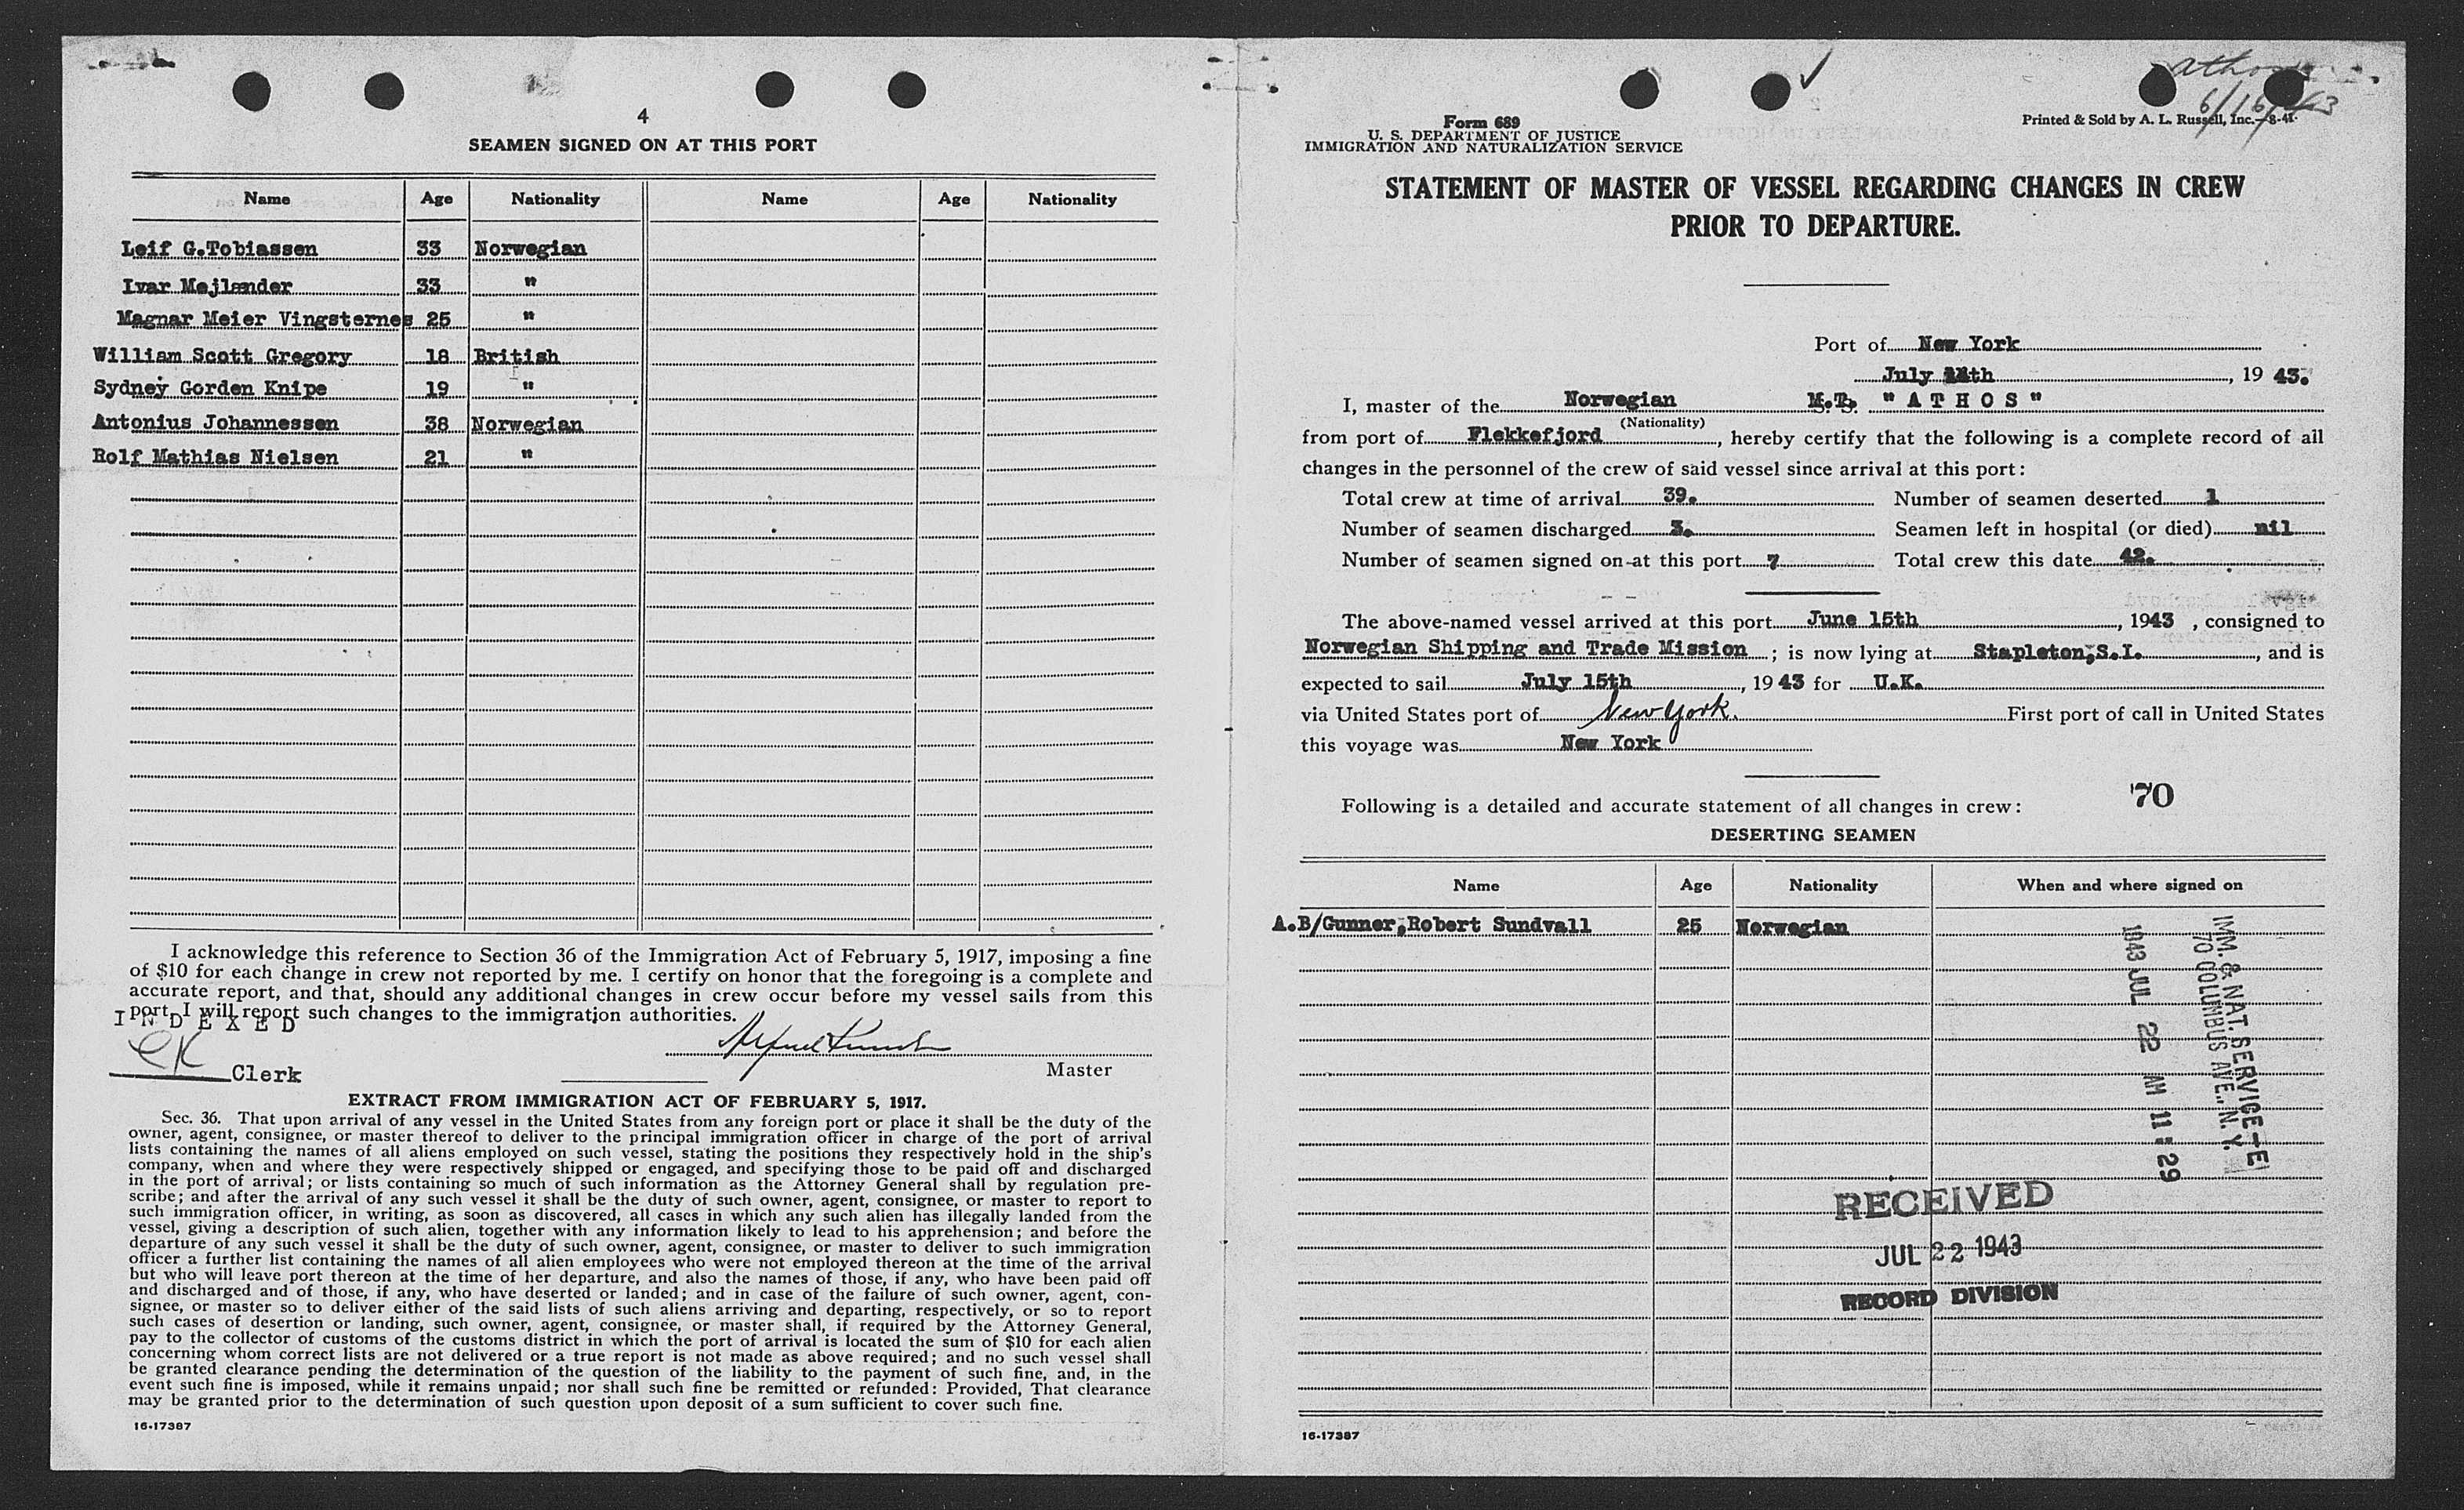 4
SEAMEN SIGNED ON AT THIS PORT
Name Age Nationality Name Age Nationality
Leif G.Tobiassen 33 Norwegian
Ivar Mejlænder 33 "
Magnar Meier Vingsternes 25 "
William Scott Gregory 18 British
Sydney Gorden Knipe 19 "
Antonius Johannessen 38 Norwegian
Rolf Mathias Nielsen 21 "
I acknowledge this reference to Section 36 of the Immigration Act of February 5, 1917, imposing a fine
of $10 for each change in crew not reported by me. I certify on honor that the foregoing is a complete and
accurate report, and that, should any additional changes in crew occur before my vessel sails from this
port, I will report such changes to the immigration authorities.
INDEXED
CK Clerk
Master
EXTRACT FROM IMMIGRATION ACT OF FEBRUARY 5, 1917.
Sec. 36. That upon arrival of any vessel in the United States from any foreign port or place it shall be the duty of the
owner, agent, consignee, or master thereof to deliver to the principal immigration officer in charge of the port of arrival
lists containing the names of all aliens employed on such vessel, stating the positions they respectively hold in the ship's
company, when and where they were respectively shipped or engaged, and specifying those to be paid off and discharged
in the port of arrival; or lists containing so much of such information as the Attorney General shall by regulation pre-
scribe; and after the arrival of any such vessel it shall be the duty of such owner, agent, consignee, or master to report to
such immigration officer, in writing, as soon as discovered, all cases in which any such alien has illegally landed from the
vessel, giving a description of such alien, together with any information likely to lead to his apprehension; and before the
departure of any such vessel it shall be the duty of such owner, agent, consignee, or master to deliver to such immigration
officer a further list containing the names of all alien employees who were not employed thereon at the time of the arrival
but who will leave port thereon at the time of her departure, and also the names of those, if any, who have been paid off
and discharged and of those, if any, who have deserted or landed; and in case of the failure of such owner, agent, con-
signee, or master so to deliver either of the said lists of such aliens arriving and departing, respectively, or so to report
such cases of desertion or landing, such owner, agent, consignee, or master shall, if required by the Attorney General,
pay to the collector of customs of the customs district in which the port of arrival is located the sum of $10 for each alien
concerning whom correct lists are not delivered or a true report is not made as above required; and no such vessel shall
be granted clearance pending the determination of the question of the liability to the payment of such fine, and, in the
event such fine is imposed, while it remains unpaid; nor shall such fine be remitted or refunded: Provided, That clearance
may be granted prior to the determination of such question upon deposit of a sum sufficient to cover such fine.
16-17387
Athos
6/16/43
Form 689
U. S. DEPARTMENT OF JUSTICE
IMMIGRATION AND NATURALIZATION SERVICE
Printed & Sold by A. L. Russell, Inc.—8-41
STATEMENT OF MASTER OF VESSEL REGARDING CHANGES IN CREW
PRIOR TO DEPARTURE.
Port of New York
July 14th, 19 43.
I, master of the Norwegian M.T. "ATHOS"
(Nationality)
from port of Flekkefjord, hereby certify that the following is a complete record of all
changes in the personnel of the crew of said vessel since arrival at this port:
Total crew at time of arrival 39. Number of seamen deserted 1
Number of seamen discharged 3. Seamen left in hospital (or died) nil
Number of seamen signed on at this port 7 Total crew this date 42.
The above-named vessel arrived at this port June 15th, 1943, consigned to
Norwegian Shipping and Trade Mission; is now lying at Stapleton,S.I., and is
expected to sail July 15th, 19 43 for U.K.
via United States port of New York. First port of call in United States
this voyage was New York
70
Following is a detailed and accurate statement of all changes in crew:
DESERTING SEAMEN
Name Age Nationality When and where signed on
A.B/Gunner,Robert Sundvall 25 Norwegian
IMM. & NAT. SERVICE-E
70 COLUMBUS AVE., N. Y.
1943 JUL 22 AM 11:29
RECEIVED
JUL 22 1943
RECORD DIVISION
16-17387